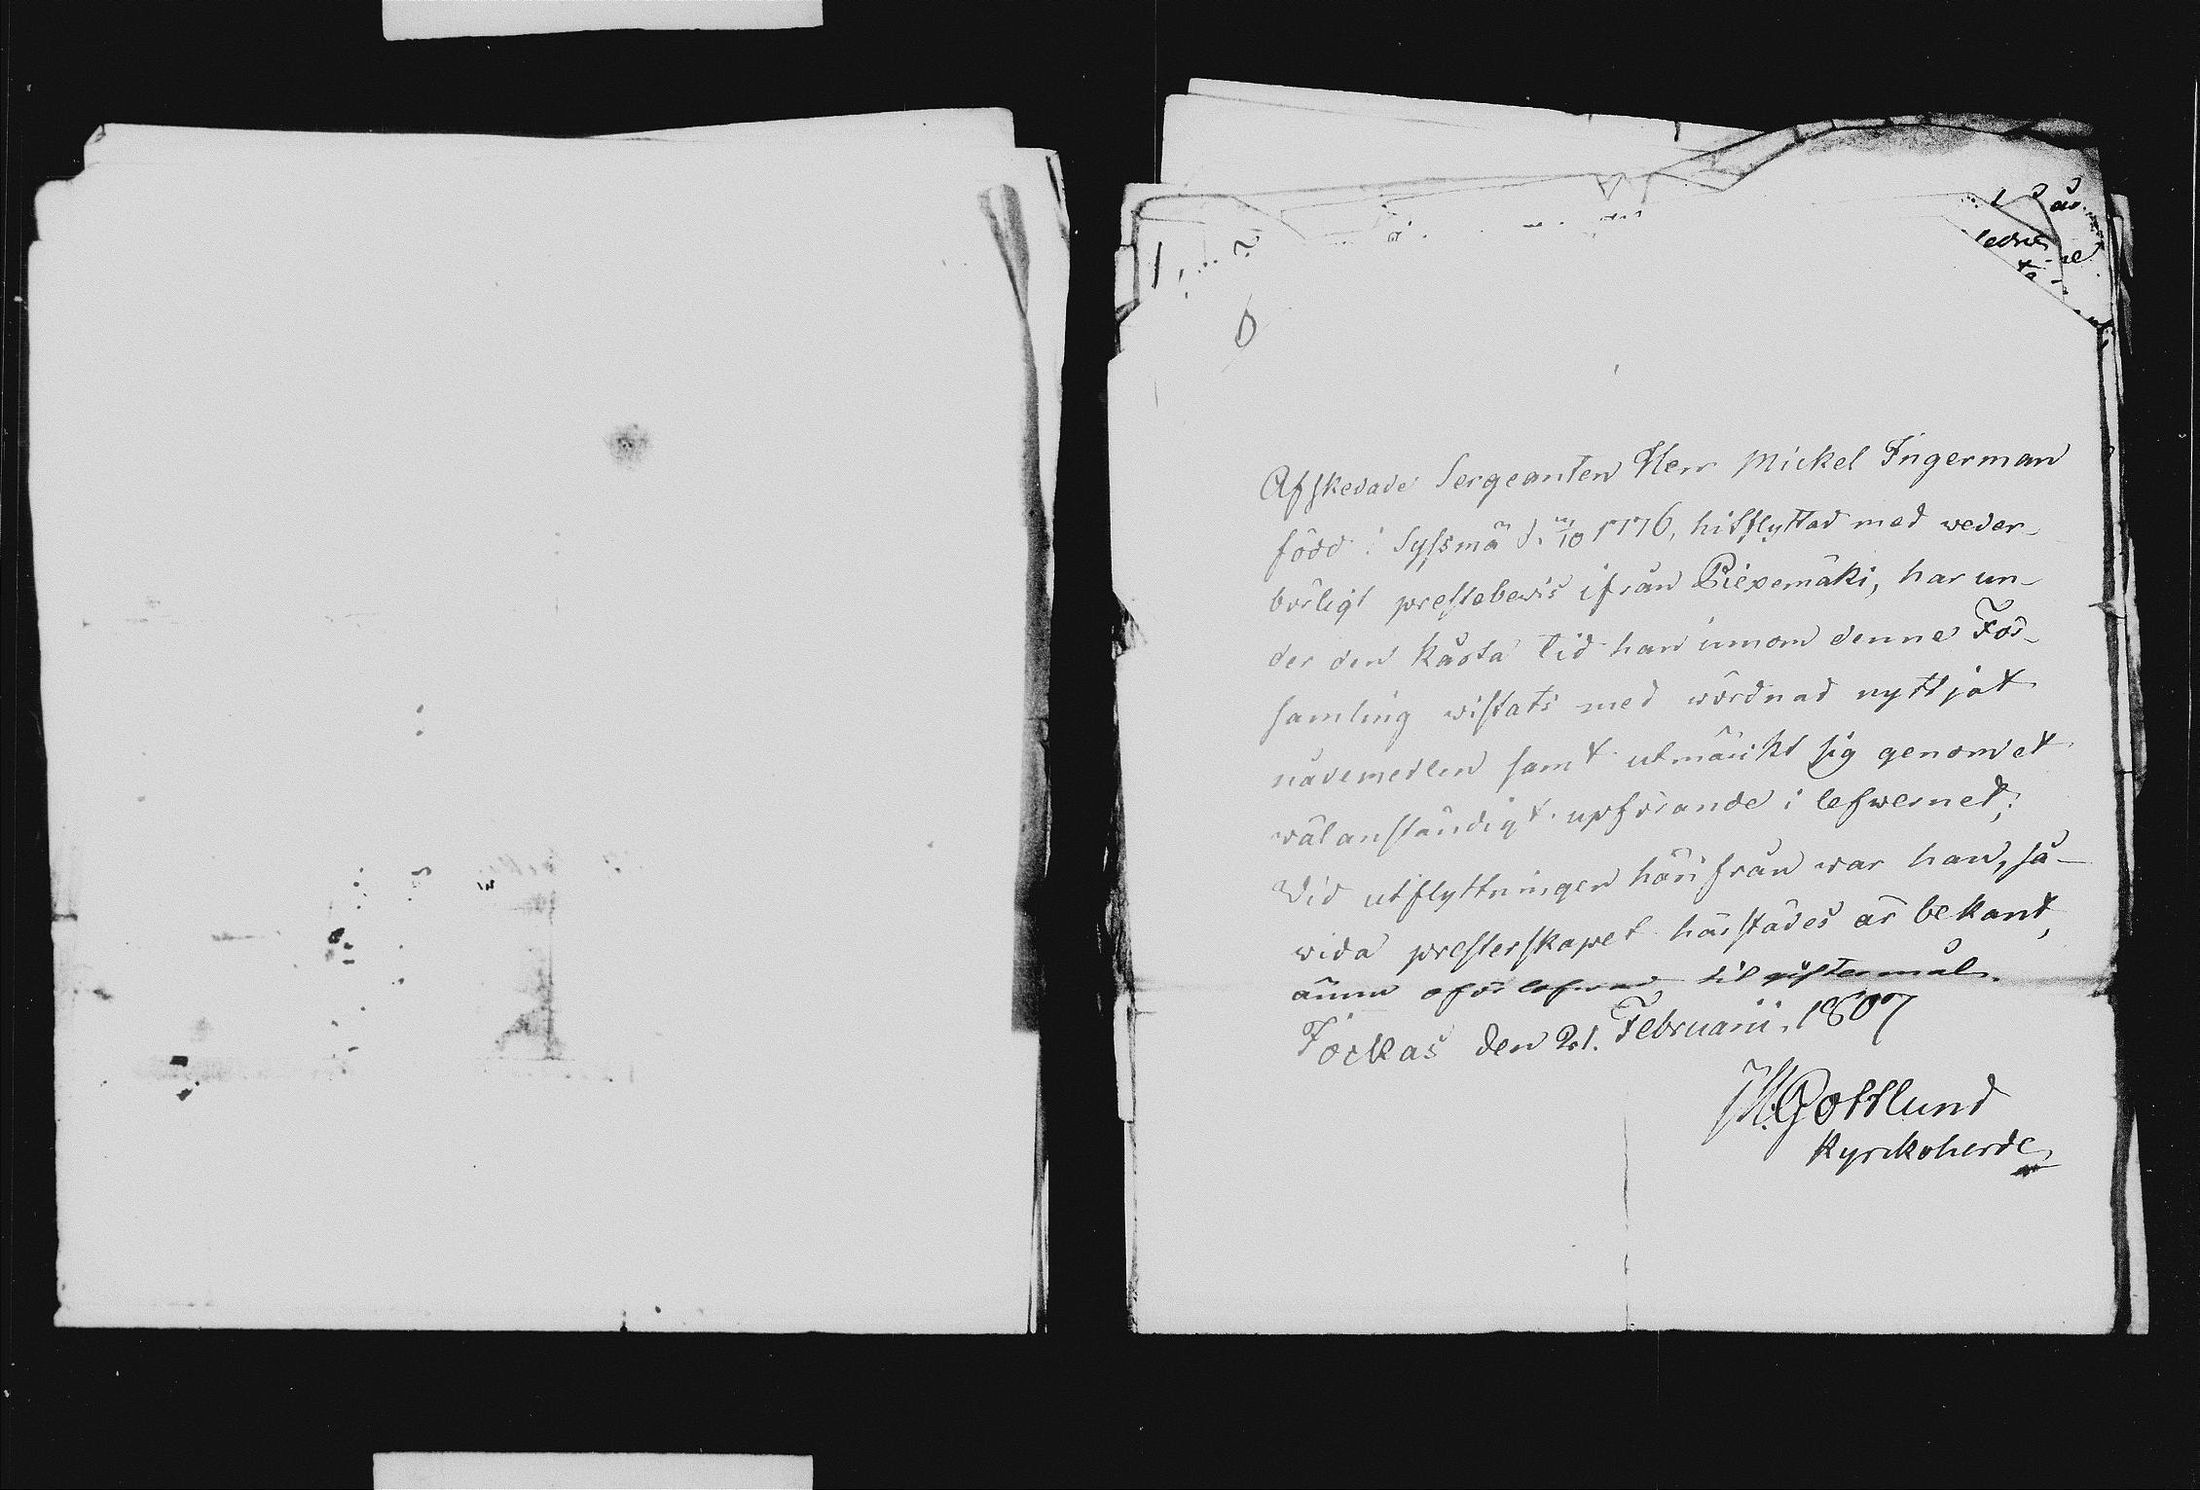 6
Afskedade Sergeanten Herr Mickel Ingerman
född i Syssmä d. 10 1776, hitflyttad med weder-
börligt prestebewis ifrån Piexemäki, har un-
der den korta tid han innom denne För-
samling wistats med wördnad nyttjat
nådemedlen samt utmärkt sig genom et
wälanständigt upförande i lefwernet;
Wid utflyttningen härifrån war han, så-
wida presterskapet härstädes är bekant,
ännu oförlofwad til giftermål.
Jockas den 21. Februarii 1807
M. Gottlund
Kyrckoherde